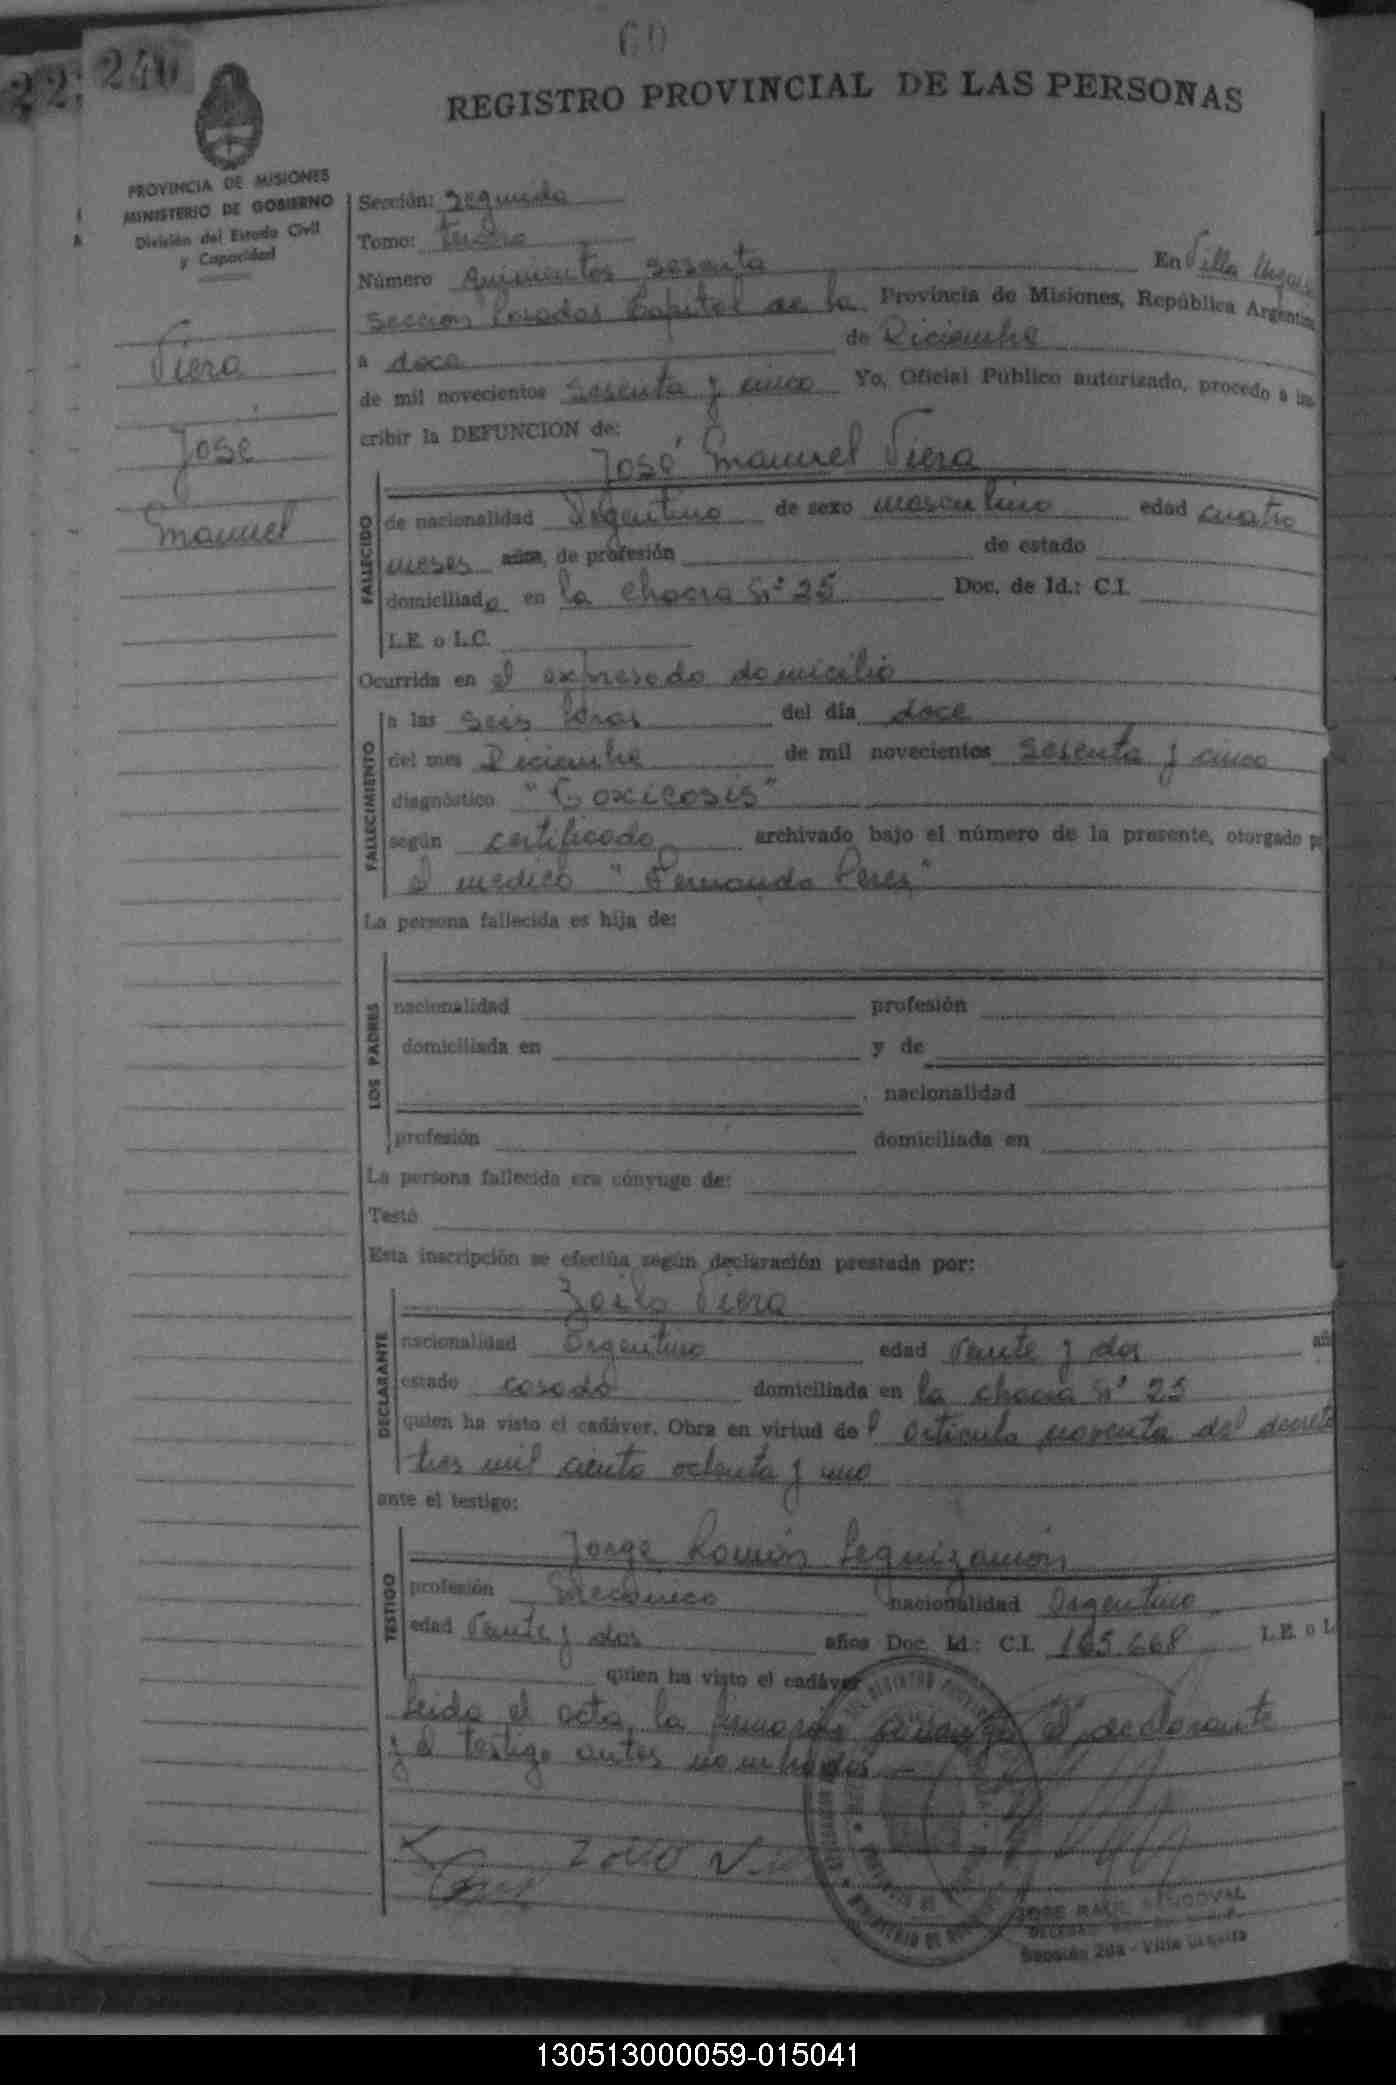 60
240
22
REGISTRO PROVINCIAL DE LAS PERSONAS
PROVINCIA DE MISIONES
MINISTERIO DE GOBIERNO
División del Estado Civil
y Capacidad
Viera
José
Emanuel
Sección: Segunda
Tomo: Tercero
Número Quinientos sesenta En Villa Urquiza
Sección Posadas Capital de la Provincia de Misiones, República Argentina
a doce de Diciembre
de mil novecientos sesenta y cinco Yo, Oficial Público autorizado, procedo a ins-
cribir la DEFUNCION de:
José Emanuel Viera
FALLECIDO
de nacionalidad Argentino de sexo masculino edad cuatro
meses años, de profesión de estado
domiciliado en la chacra Nº 25 Doc. de Id.: C.I.
L.E. o L.C.
Ocurrida en el expresado domicilio
FALLECIMIENTO
a las seis horas del día doce
del mes Diciembre de mil novecientos sesenta y cinco
diagnóstico "Toxicosis"
según certificado archivado bajo el número de la presente, otorgado p
el medico "Fernando Perez"
La persona fallecida es hija de:
LOS PADRES
nacionalidad profesión
domiciliada en y de
, nacionalidad
profesión domiciliada en
La persona fallecida era cónyuge de:
Testó
Esta inscripción se efectúa según declaración prestada por:
Zoilo Viera
DECLARANTE
nacionalidad Argentino edad veinte y dos añ
estado casado domiciliada en la chacra Nº 25
quien ha visto el cadáver. Obra en virtud del artículo noventa del decreto
tres mil ciento ochenta y uno
ante el testigo:
Jorge Ramón Leguizamón
TESTIGO
profesión Mecánico nacionalidad Argentino
edad veinte y dos años Doc. Id.: C.I. 165.668 L.E. o L.
quien ha visto el cadáver
Leida el acta, la firmaron conmigo el declarante
y el testigo antes nombrados.—
JOSE RAUL SANDOVAL
Sección 2da - Villa Urquiza
130513000059-015041